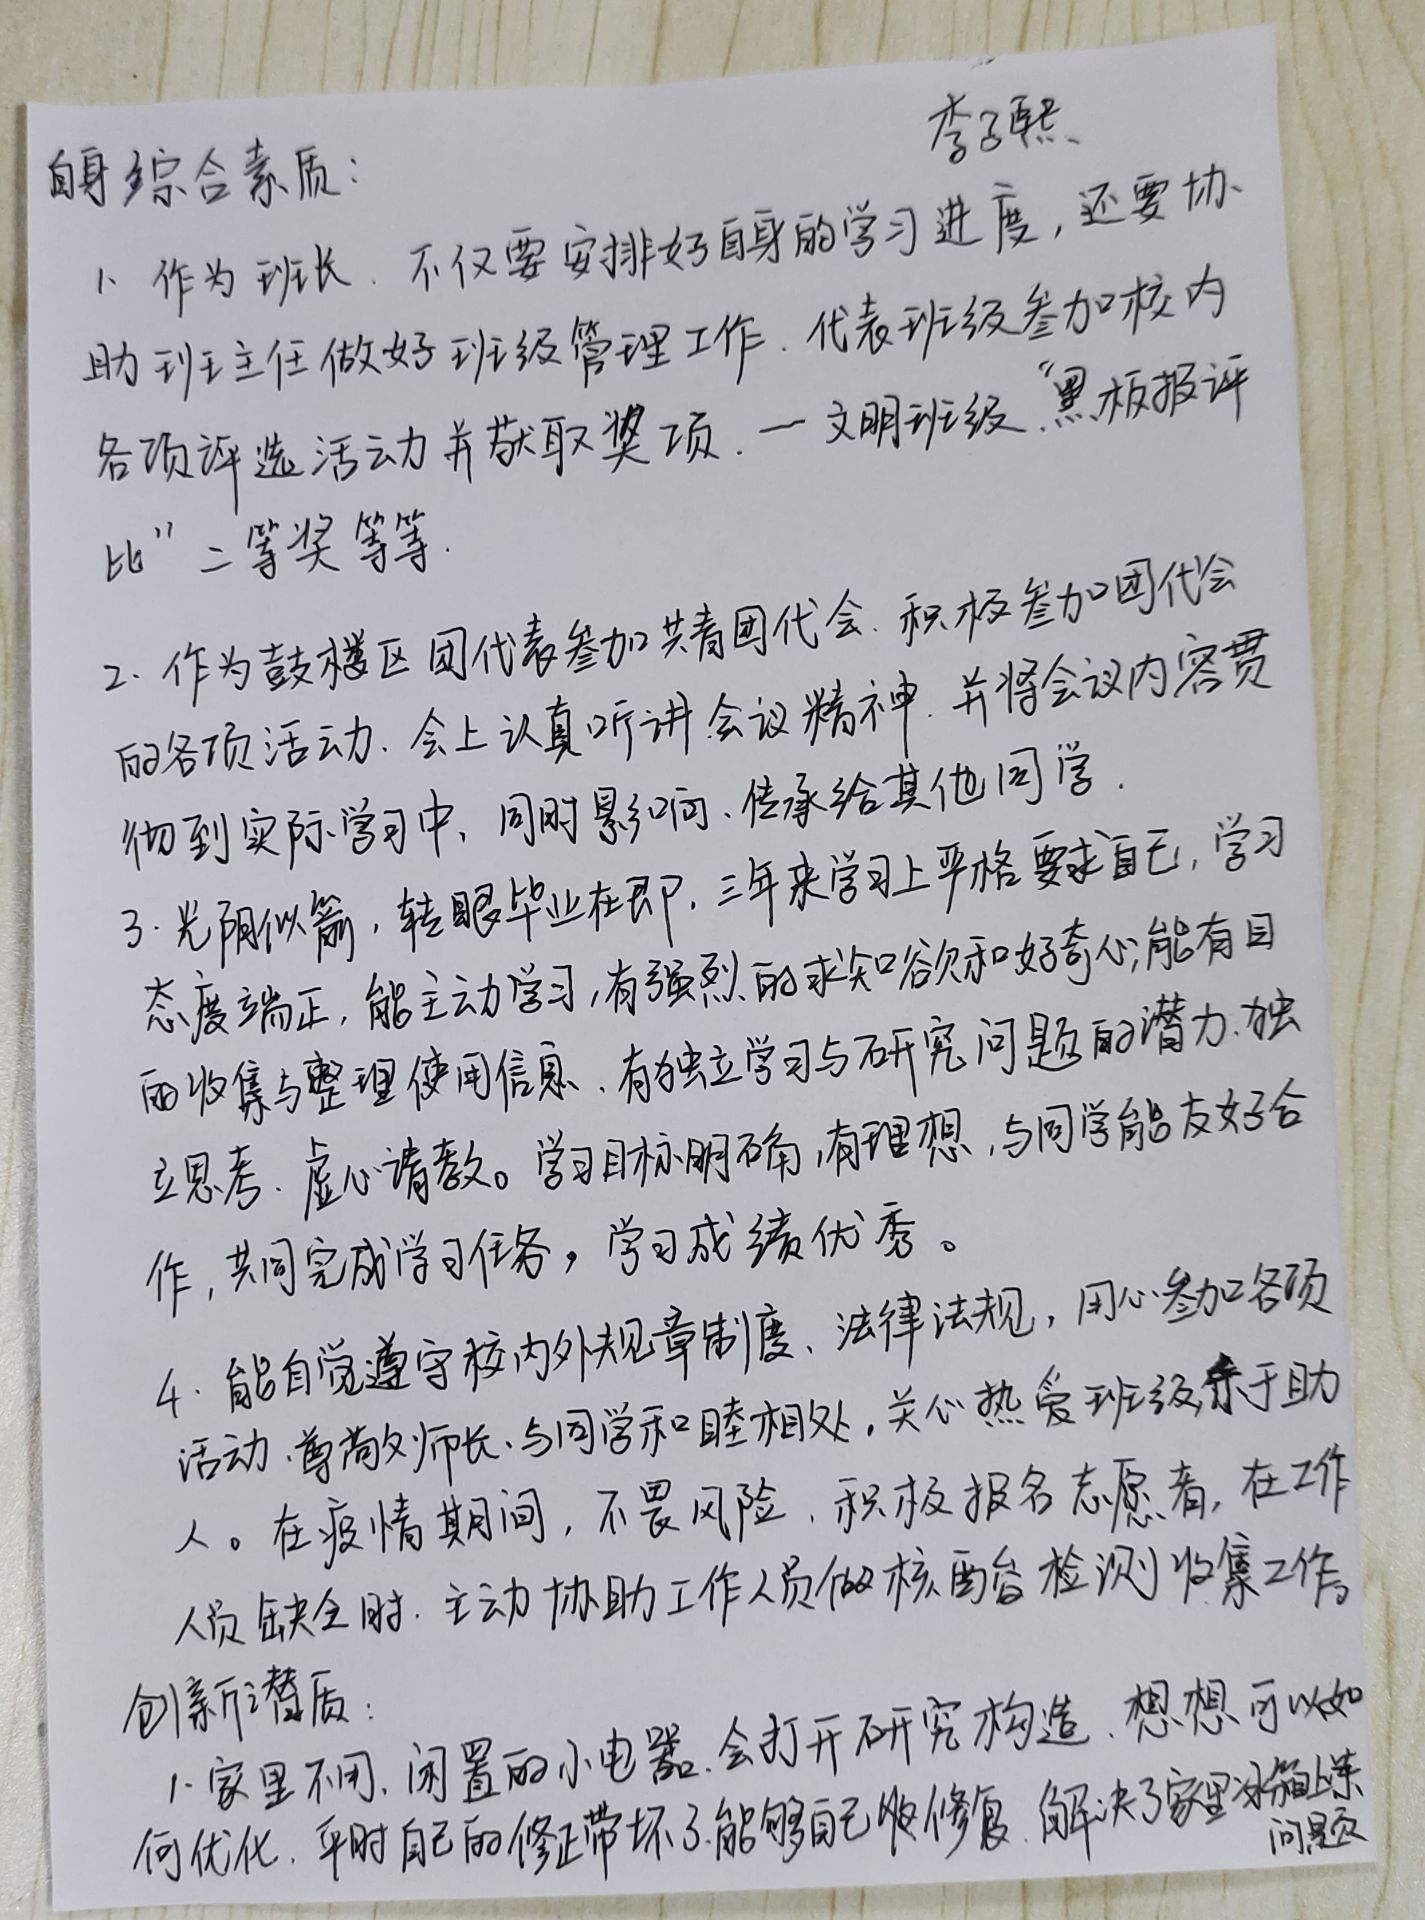 李子熙
自身综合素质：
1、作为班长、不仅要安排好自身的学习进度，还要协
助班主任做好班级管理工作、代表班级参加校内
各项评选活动并获取奖项、一文明班级、“黑板报评
比”二等奖等等.
2、作为鼓楼区团代表参加共青团代会、积极参加团代会
的各项活动、会上认真听讲会议精神、并将会议内容贯
彻到实际学习中，同时影响、传承给其他同学.
3、光阴似箭，转眼毕业在即，三年来学习上严格要求自己，学习
态度端正，能主动学习，有强烈的求知欲和好奇心；能有目
的收集与整理使用信息、有独立学习与研究问题的潜力、独
立思考、虚心请教。学习目标明确，有理想，与同学能友好合
作，共同完成学习任务，学习成绩优秀。
4、能自觉遵守校内外规章制度、法律法规，用心参加各项
活动、尊敬师长、与同学和睦相处。关心热爱班级，乐于助
人。在疫情期间，不畏风险，积极报名志愿者，在工作
人员缺乏时、主动协助工作人员做核酸检测收集工作。
创新潜质：
1、家里不用、闲置的小电器、会打开研究构造、想想可以如
何优化、平时自己的修正带坏了、能够自己修复、解决了家里冰箱上
问题